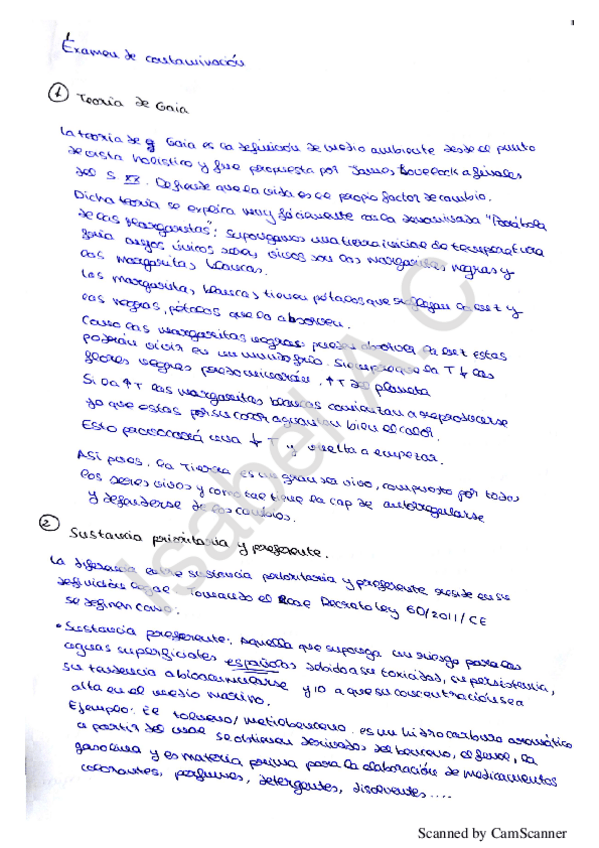 Examen de contaminación
① Teoría de Gaia
La teoría de Gaia es la definición de medio ambiente desde el punto
de vista holístico y fue propuesta por James Lovelock a finales
del S XX. Defiende que la vida es el propio factor de cambio.
Dicha teoría se explica muy fácilmente con la denominada "Parábola
de las Margaritas": Supongamos una tierra inicial de temperatura
fría cuyos únicos seres vivos son las margaritas negras y
las margaritas blancas.
Las margaritas blancas tienen pétalos que reflejan la luz y
las negras, pétalos que la absorven.
Como las margaritas negras pueden absolver la luz estas
podrán vivir en un mundo frío. Siempre que la T ↓ las
flores negras predominarán, ↑T del planeta
Si la ↑T las margaritas blancas comienzan a reproducirse
ya que estas por su color aguantan bien el calor.
Esto provocará una ↓ T y vuelta a empezar.
Así pues, la Tierra es un gran ser vivo, compuesto por todos
los seres vivos y como tal tiene la cap de autorregularse
y defenderse de los cambios.
② Sustancia prioritaria y preferente.
La diferencia entre sustancia prioritaria y preferente reside en su
definición legal. Tomando el Real Decreto Ley 60/2011/CE
se definen como:
• Sustancia preferente: Aquella que suponga un riesgo para las
aguas superficiales españolas debido a su toxicidad, su persistencia,
su tendencia a bioacumularse y/o a que su concentración sea
alta en el medio marino.
Ejemplo: El tolueno/metilbenceno. es un hidrocarburo aromático
a partir del cual se obtienen derivados del benceno, el fenol, la
gasolina y es materia prima para la elaboración de medicamentos
colorantes, perfumes, detergentes, disolventes....
Isabel A C
Scanned by CamScanner